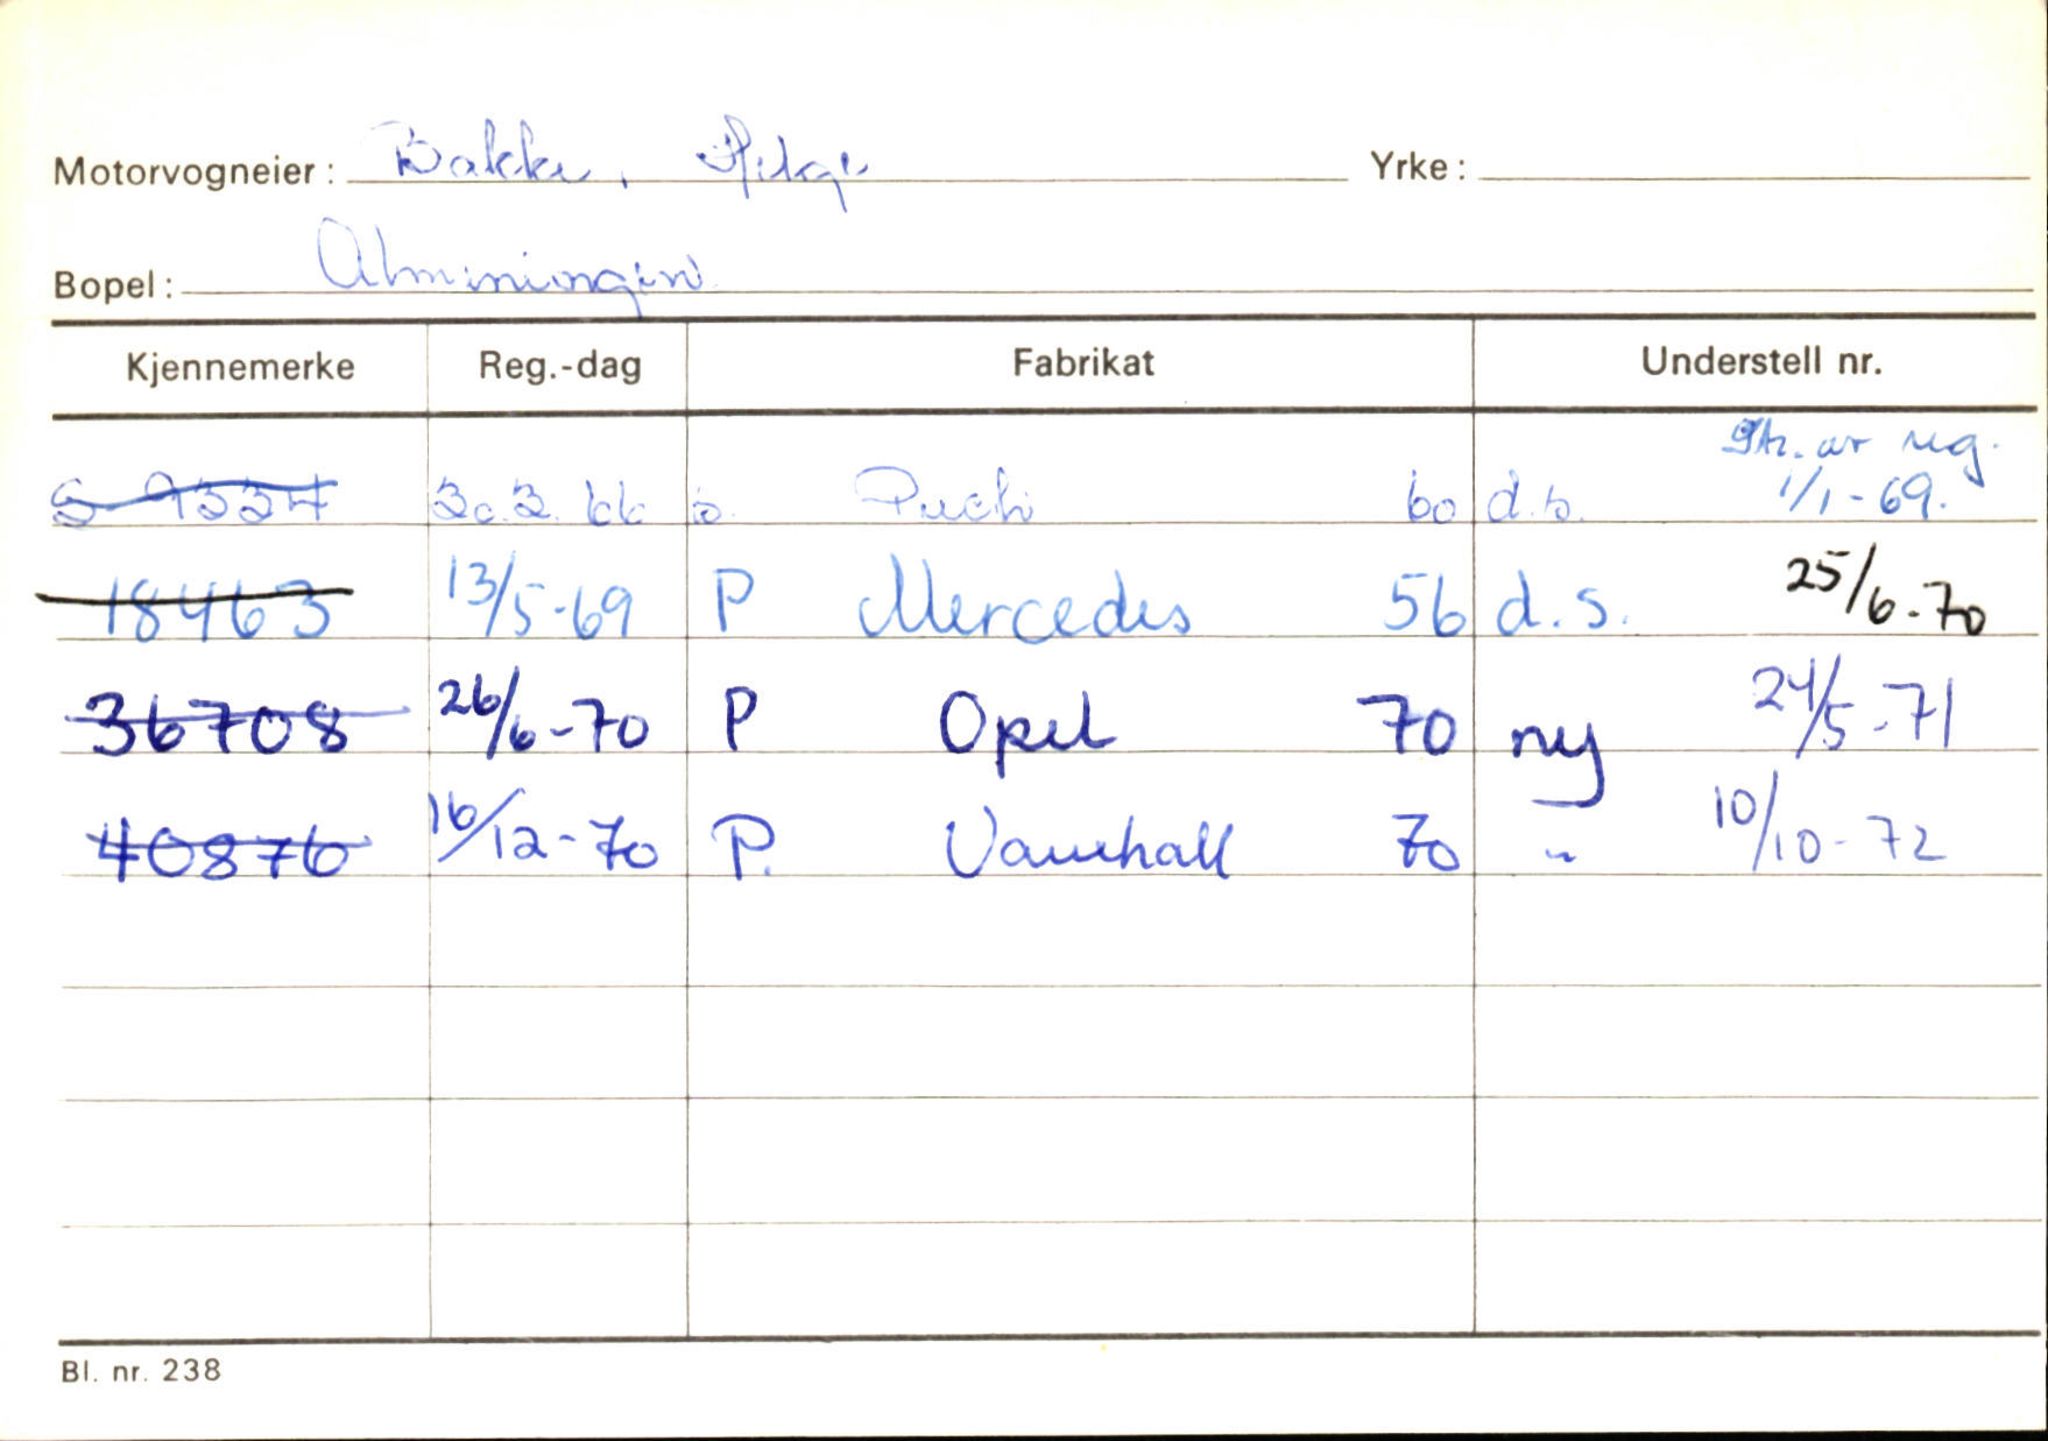 Motorvogneier: Bakke, Helge Yrke:
Bopel: Almenningen
Kjennemerke Reg.-dag Fabrikat Understell nr.
Str. av reg.
S-9334 Puch 60 d.s. 1/1-69.
18463 13/5-69 P Mercedes 56 d.s. 25/6-70
36708 26/6-70 P Opel 70 ny 24/5-71
40876 16/12-70 P. Vauxhall 70 " 10/10-72
Bl. nr. 238